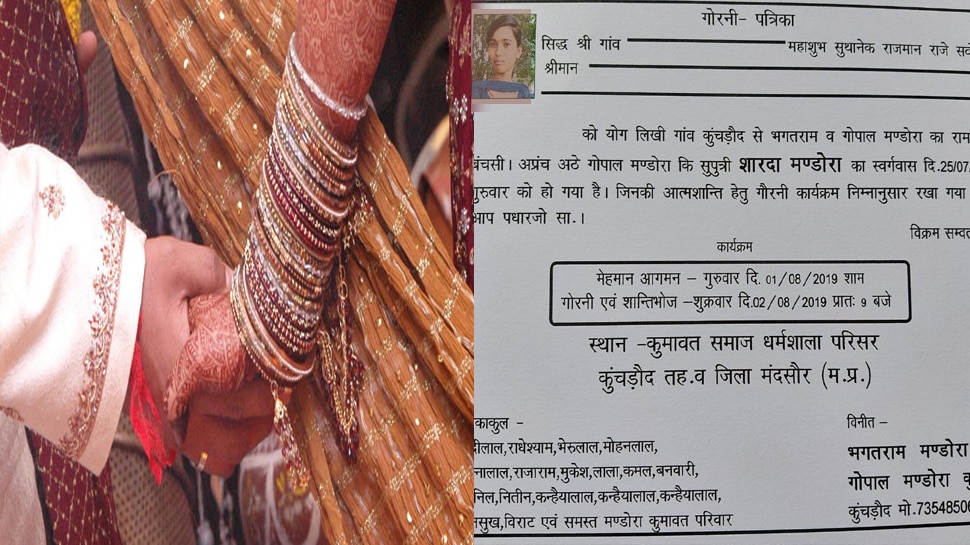 गोरनी- पत्रिका
सिद्ध श्री गांव महाशुभ सुथानेक राजमान राजे
श्रीमान
को योग लिखी गांव कुंचड़ौद से भगतराम व गोपाल मण्डोरा का राम
बंचसी। अप्रंच अठे गोपाल मण्डोरा कि सुपुत्री शारदा मण्डोरा का स्वर्गवास दि.25/07
गुरुवार को हो गया है। जिनकी आत्मशान्ति हेतु गौरनी कार्यक्रम निम्नानुसार रखा गया
आप पधारजो सा.।
विक्रम सम्वत
कार्यक्रम
मेहमान आगमन – गुरुवार दि. 01/08/2019 शाम
गोरनी एवं शान्तिभोज –शुक्रवार दि.02/08/2019 प्रातः 9 बजे
स्थान –कुमावत समाज धर्मशाला परिसर
कुंचड़ौद तह.व जिला मंदसौर (म.प्र.)
काकुल – विनीत –
लाल,राधेश्याम,भेरुलाल,मोहनलाल, भगतराम मण्डोरा
नालाल,राजाराम,मुकेश,लाला,कमल,बनवारी, गोपाल मण्डोरा
निल,नितीन,कन्हैयालाल,कन्हैयालाल,कन्हैयालाल, कुंचड़ौद मो.7354850
सुख,विराट एवं समस्त मण्डोरा कुमावत परिवार